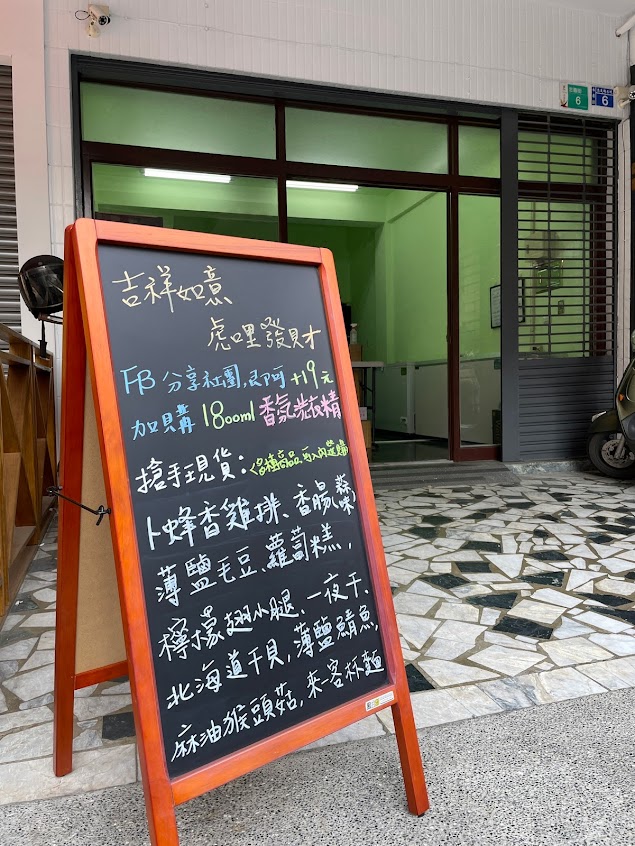 吉祥如意
虎哩發財
FB 分享社團,即可 +19元
加購 1800ml 香氛洗衣精
搶手現貨:<多種商品,可入內選購>
卜蜂香雞排、香腸(蒜味)
薄鹽毛豆、蘿蔔糕,
檸檬翅小腿、一夜干、
北海道干貝,薄鹽鯖魚,
麻油猴頭菇,來一客杯麵
6
6